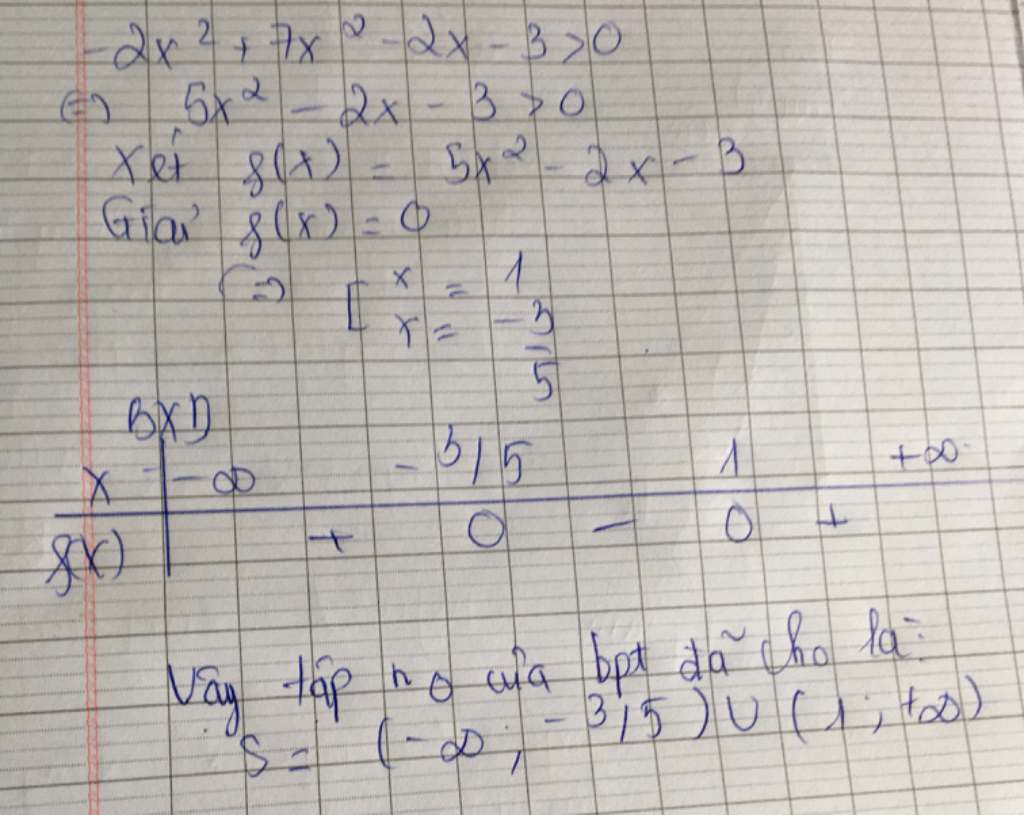 -2x² + 7x² - 2x - 3 > 0
⇔ 5x² - 2x - 3 > 0
Xét f(x) = 5x² - 2x - 3
Giải f(x) = 0
⇔ [ x = 1
x = -3/5
BXD
x -∞ -3/5 1 +∞
f(x) + 0 - 0 +
Vậy tập no của bpt đã cho là:
S = (-∞; -3/5) ∪ (1; +∞)